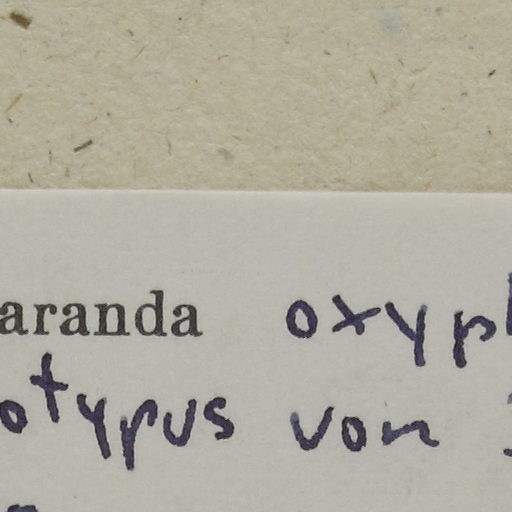 aranda oxyp
otypus von